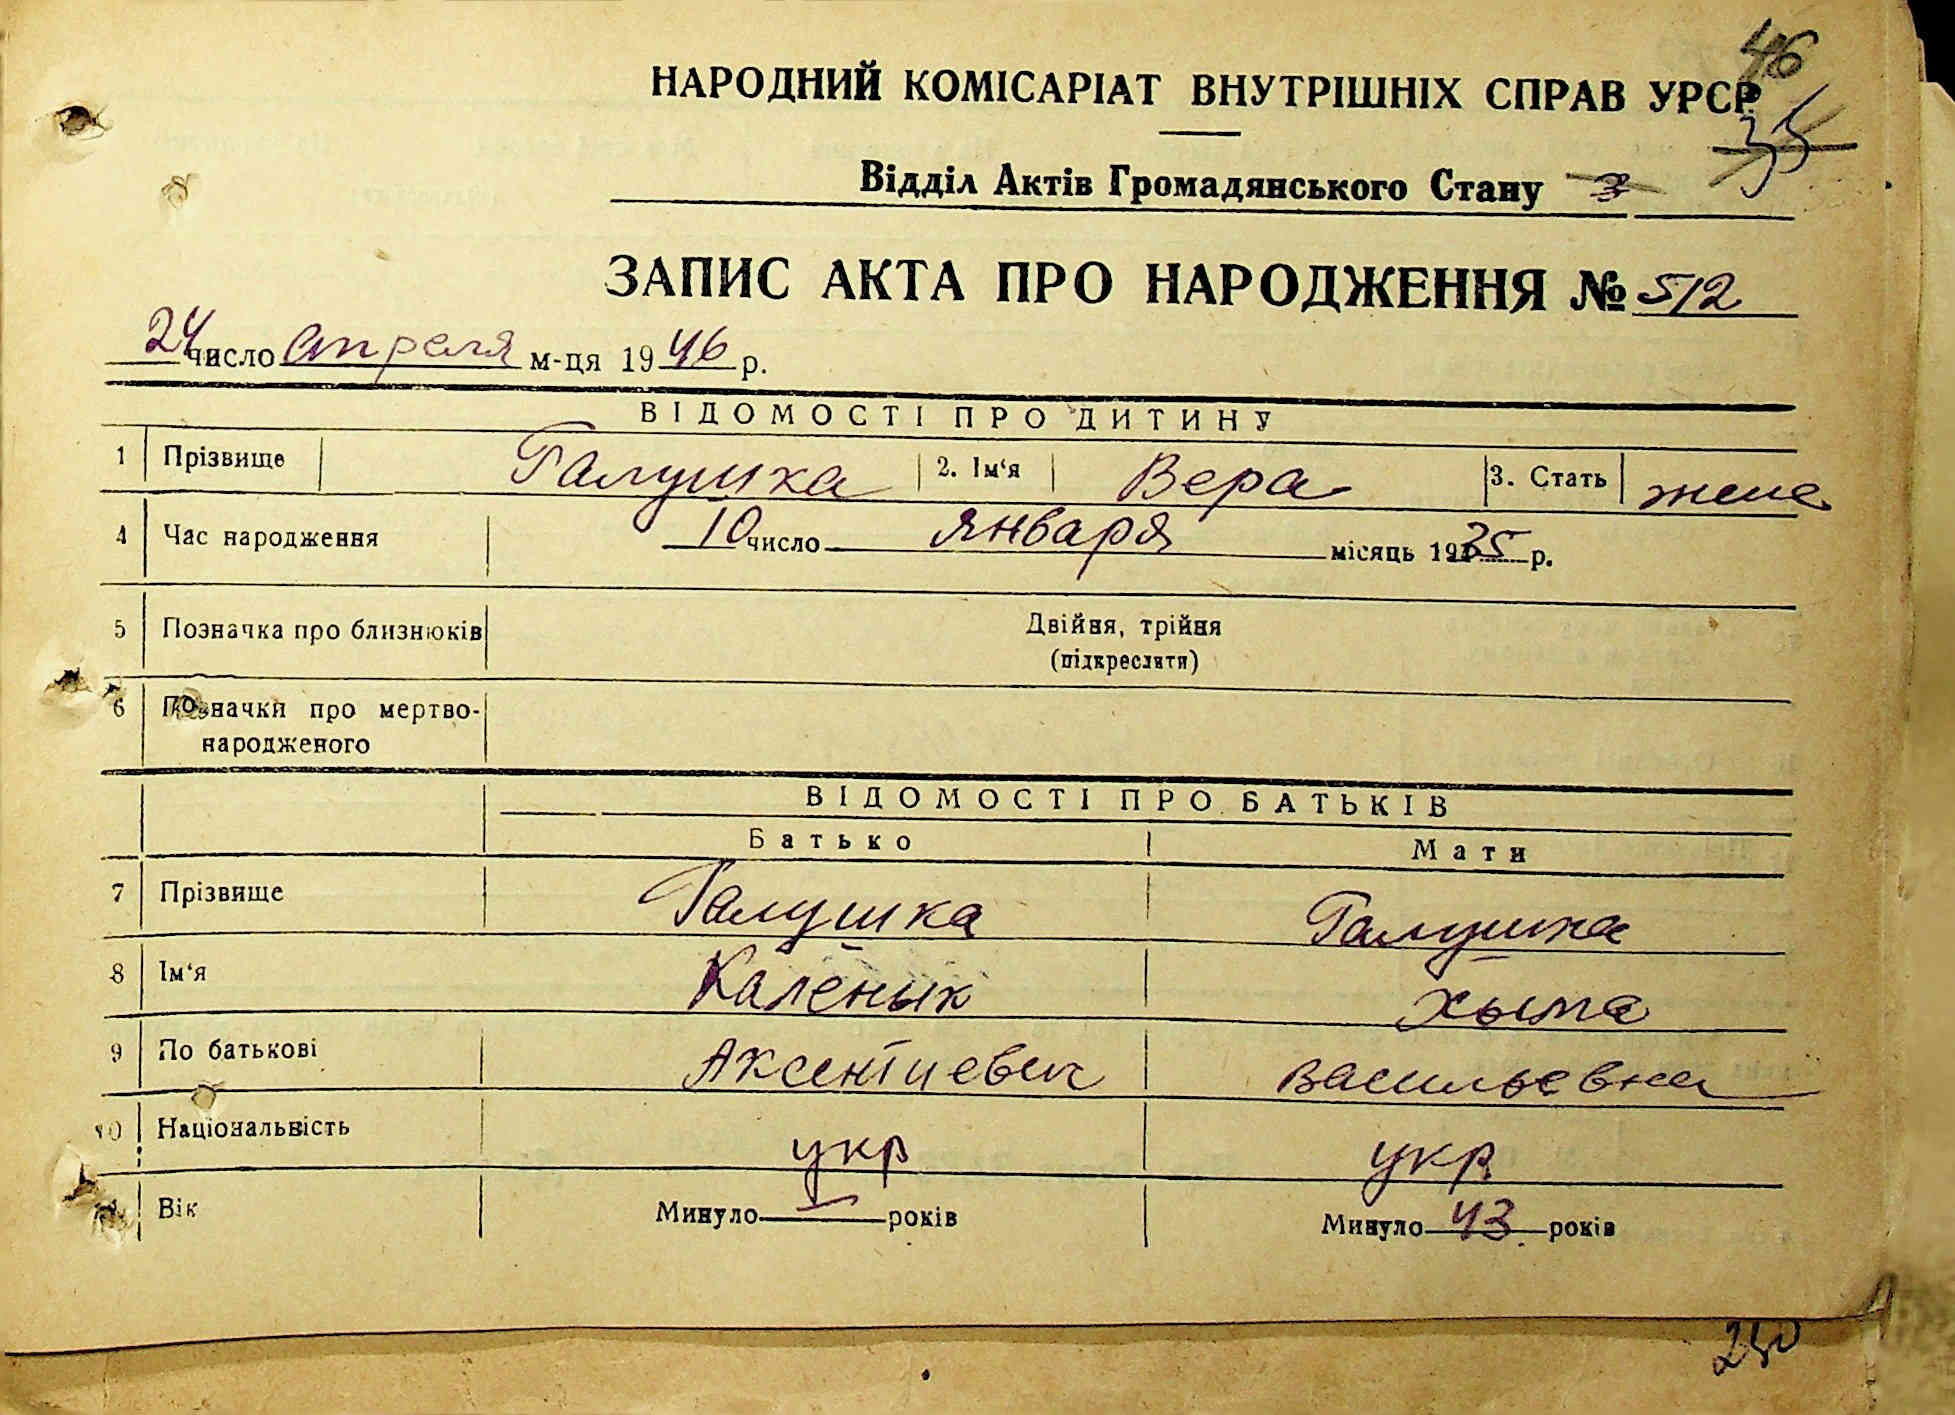 46
НАРОДНИЙ КОМІСАРІАТ ВНУТРІШНІХ СПРАВ УРСР
35
Відділ Актів Громадянського Стану 3
ЗАПИС АКТА ПРО НАРОДЖЕННЯ № 512
24 число апреля м-ця 1946 р.
ВІДОМОСТІ ПРО ДИТИНУ
1 Прізвище Галушка 2. Ім‘я Вера 3. Стать жен
4 Час народження 10 число января місяць 1935 р.
5 Позначка про близнюків Двійня, трійня
(підкреслити)
6 Позначки про мертво-
народженого
ВІДОМОСТІ ПРО БАТЬКІВ
Батько Мати
7 Прізвище Галушка Галушка
8 Ім‘я Каленык Хыма
9 По батькові Аксентиевич Васильевна
10 Національність укр укр
11 Вік Минуло — років Минуло 43 років
250